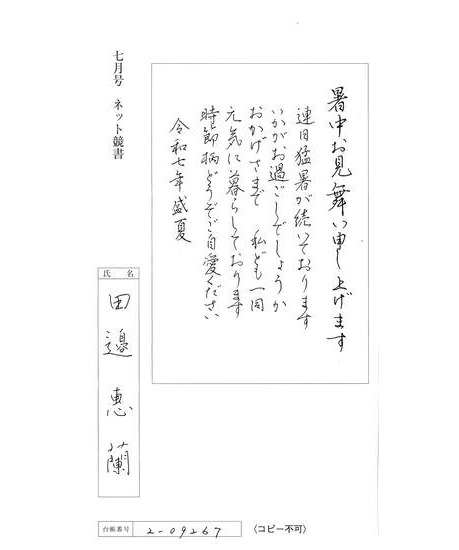 暑中お見舞い申し上げます
連日猛暑が続いております
いかがお過ごしでしょうか
おかげさまで 私ども一同
元気に暮らしております
時節柄どうぞご自愛ください
令和七年盛夏
七月号 ネット競書
氏名
田邉恵蘭
台帳番号 2-09267
〈コピー不可〉